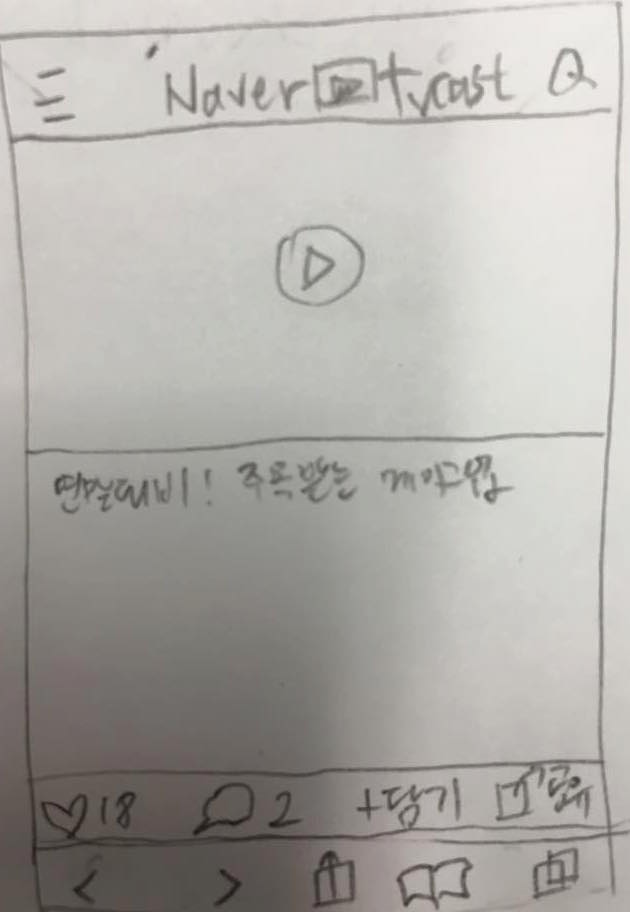 Naver tvcast
연말대비! 주목받는
18 2 +담기 공유